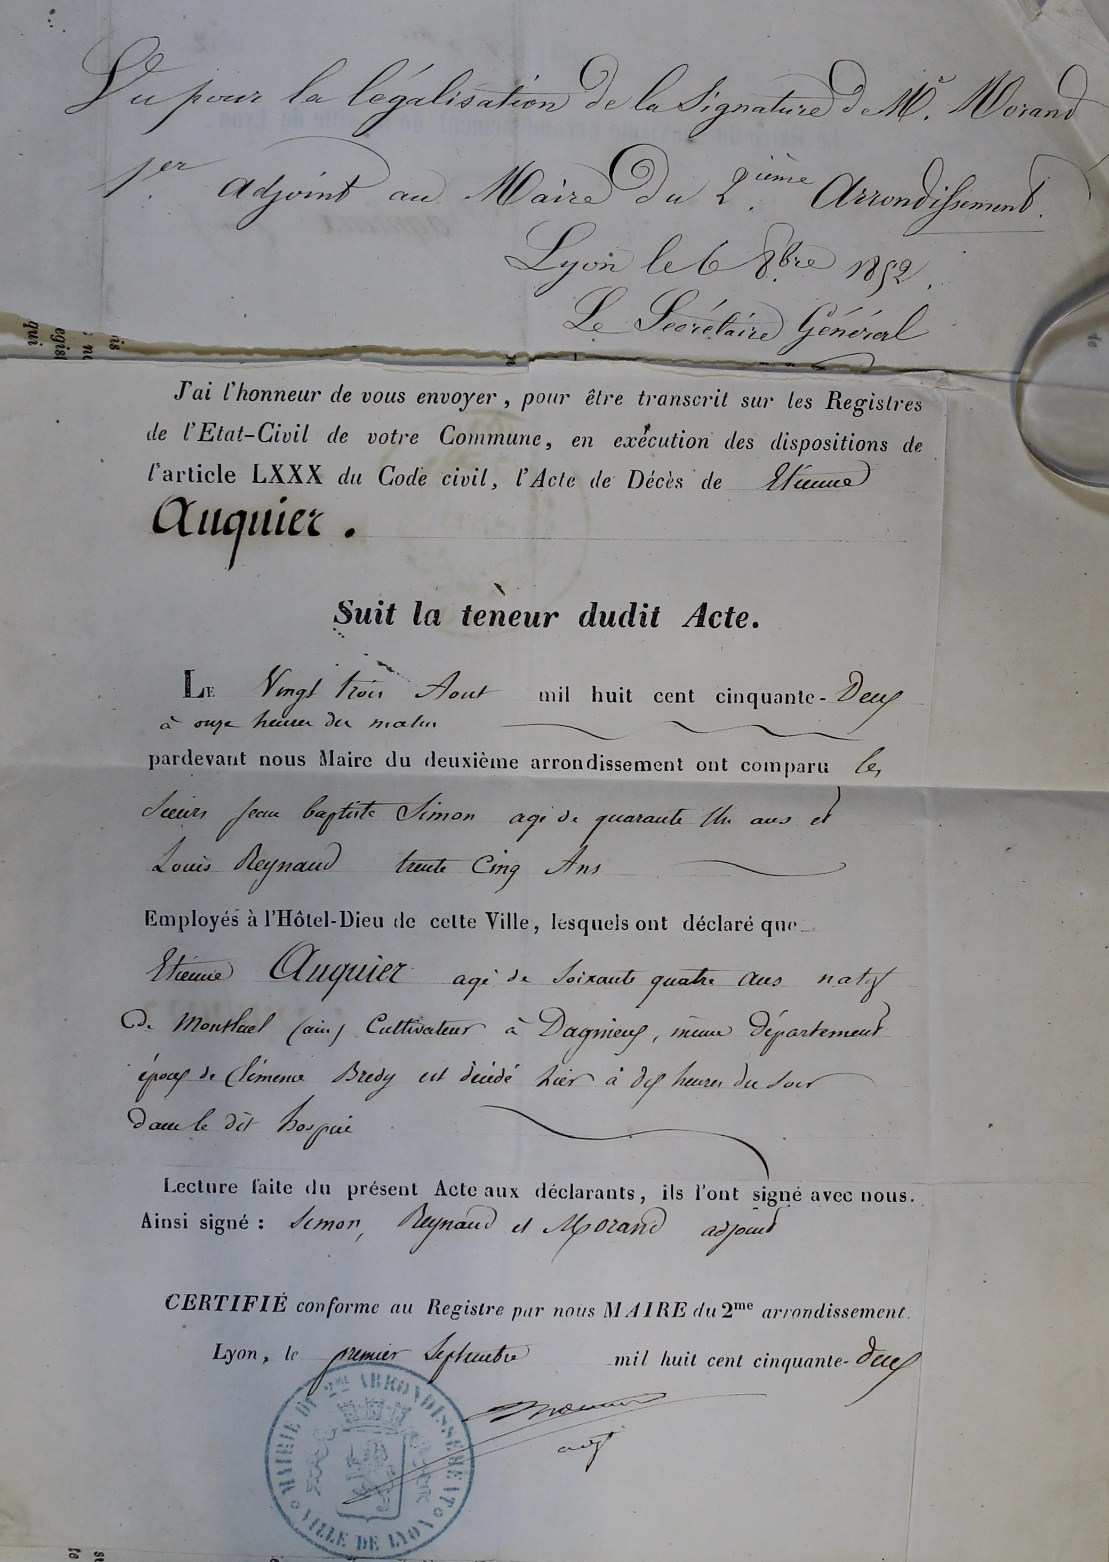 Vu pour la légalisation de la Signature de Mr. Morand
1er. adjoint au Maire du 2ième. Arrondissement.
Lyon le 6 8bre 1852.
Le Secrétaire Général
J'ai l'honneur de vous envoyer, pour être transcrit sur les Registres
de l'Etat-Civil de votre Commune, en exécution des dispositions de
l'article LXXX du Code civil, l'Acte de Décès de Etienne
Auquier.
Suit la teneur dudit Acte.
LE Vingt trois Aout mil huit cent cinquante-Deux
à onze heures du matin
pardevant nous Maire du deuxième arrondissement ont comparu les
Sieurs Jean baptiste Simon agé de quarante Un ans et
Louis Reynaud trente Cinq Ans
Employés à l'Hôtel-Dieu de cette Ville, lesquels ont déclaré que
Etienne Auquier agé de Soixante quatre ans natif
De Montluel (ain) Cultivateur à Dagnieux, même département
époux de Clémence Bredy est décédé hier à dix heures du Soir
dans le dit hospice
Lecture faite du présent Acte aux déclarants, ils l'ont signé avec nous.
Ainsi signé : Simon, Reynaud et Morand adjoint
CERTIFIÉ conforme au Registre par nous MAIRE du 2me arrondissement.
Lyon, le premier Septembre mil huit cent cinquante-deux
adjt
MAIRIE DU 2ME ARRONDISSEMENT
VILLE DE LYON